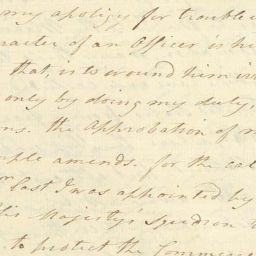 my apoligy for trouble
racter of an Officer is hi
that, is to wound him in
only by doing my duty,
ns. the Approbation of m
ple amends. for the cal
last I was appointed by
his Majestys Squadron
to protect the Commerc